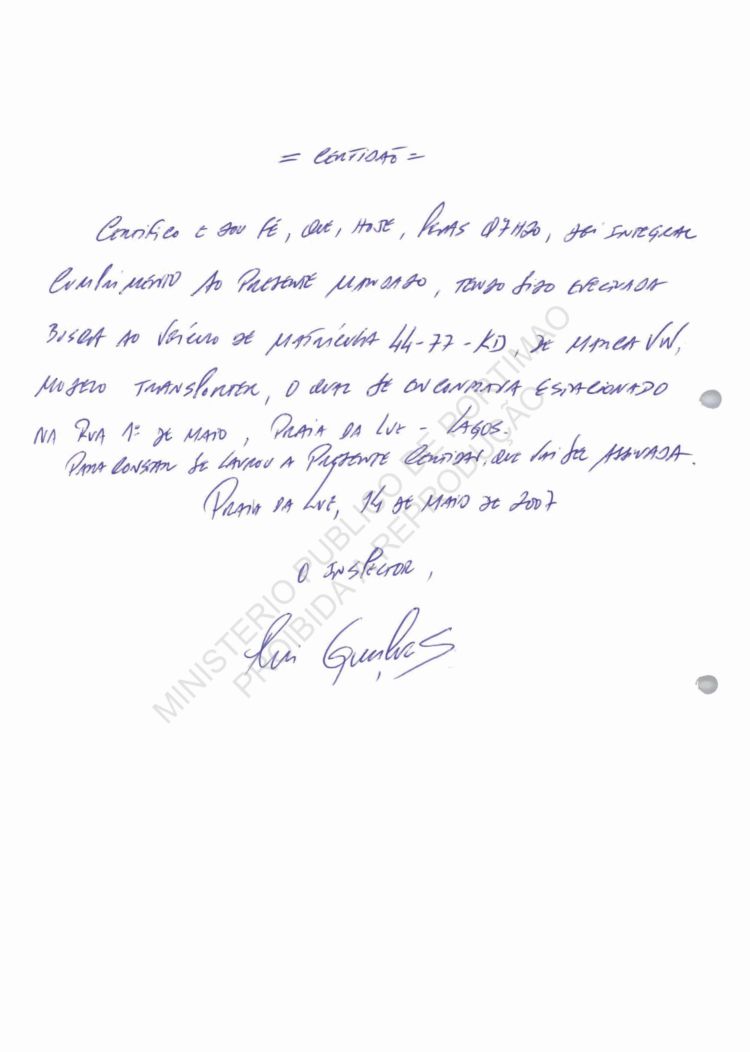 = CERTIDÃO =
Certifico e dou fé, que, hoje, pelas 07H20, dei integral
cumprimento ao presente mandado, tendo sido efectuada
busca ao veículo de matrícula 44-77-KD, de marca VW,
modelo Transporter, o qual se encontrava estacionado
na Rua 1º de Maio, Praia da Luz - Lagos.
Para constar se lavrou a presente certidão, que vai ser assinada.
Praia da Luz, 14 de Maio de 2007
O Inspector,
MINISTERIO PUBLICO DE PORTIMAO
PROIBIDA A REPRODUÇÃO